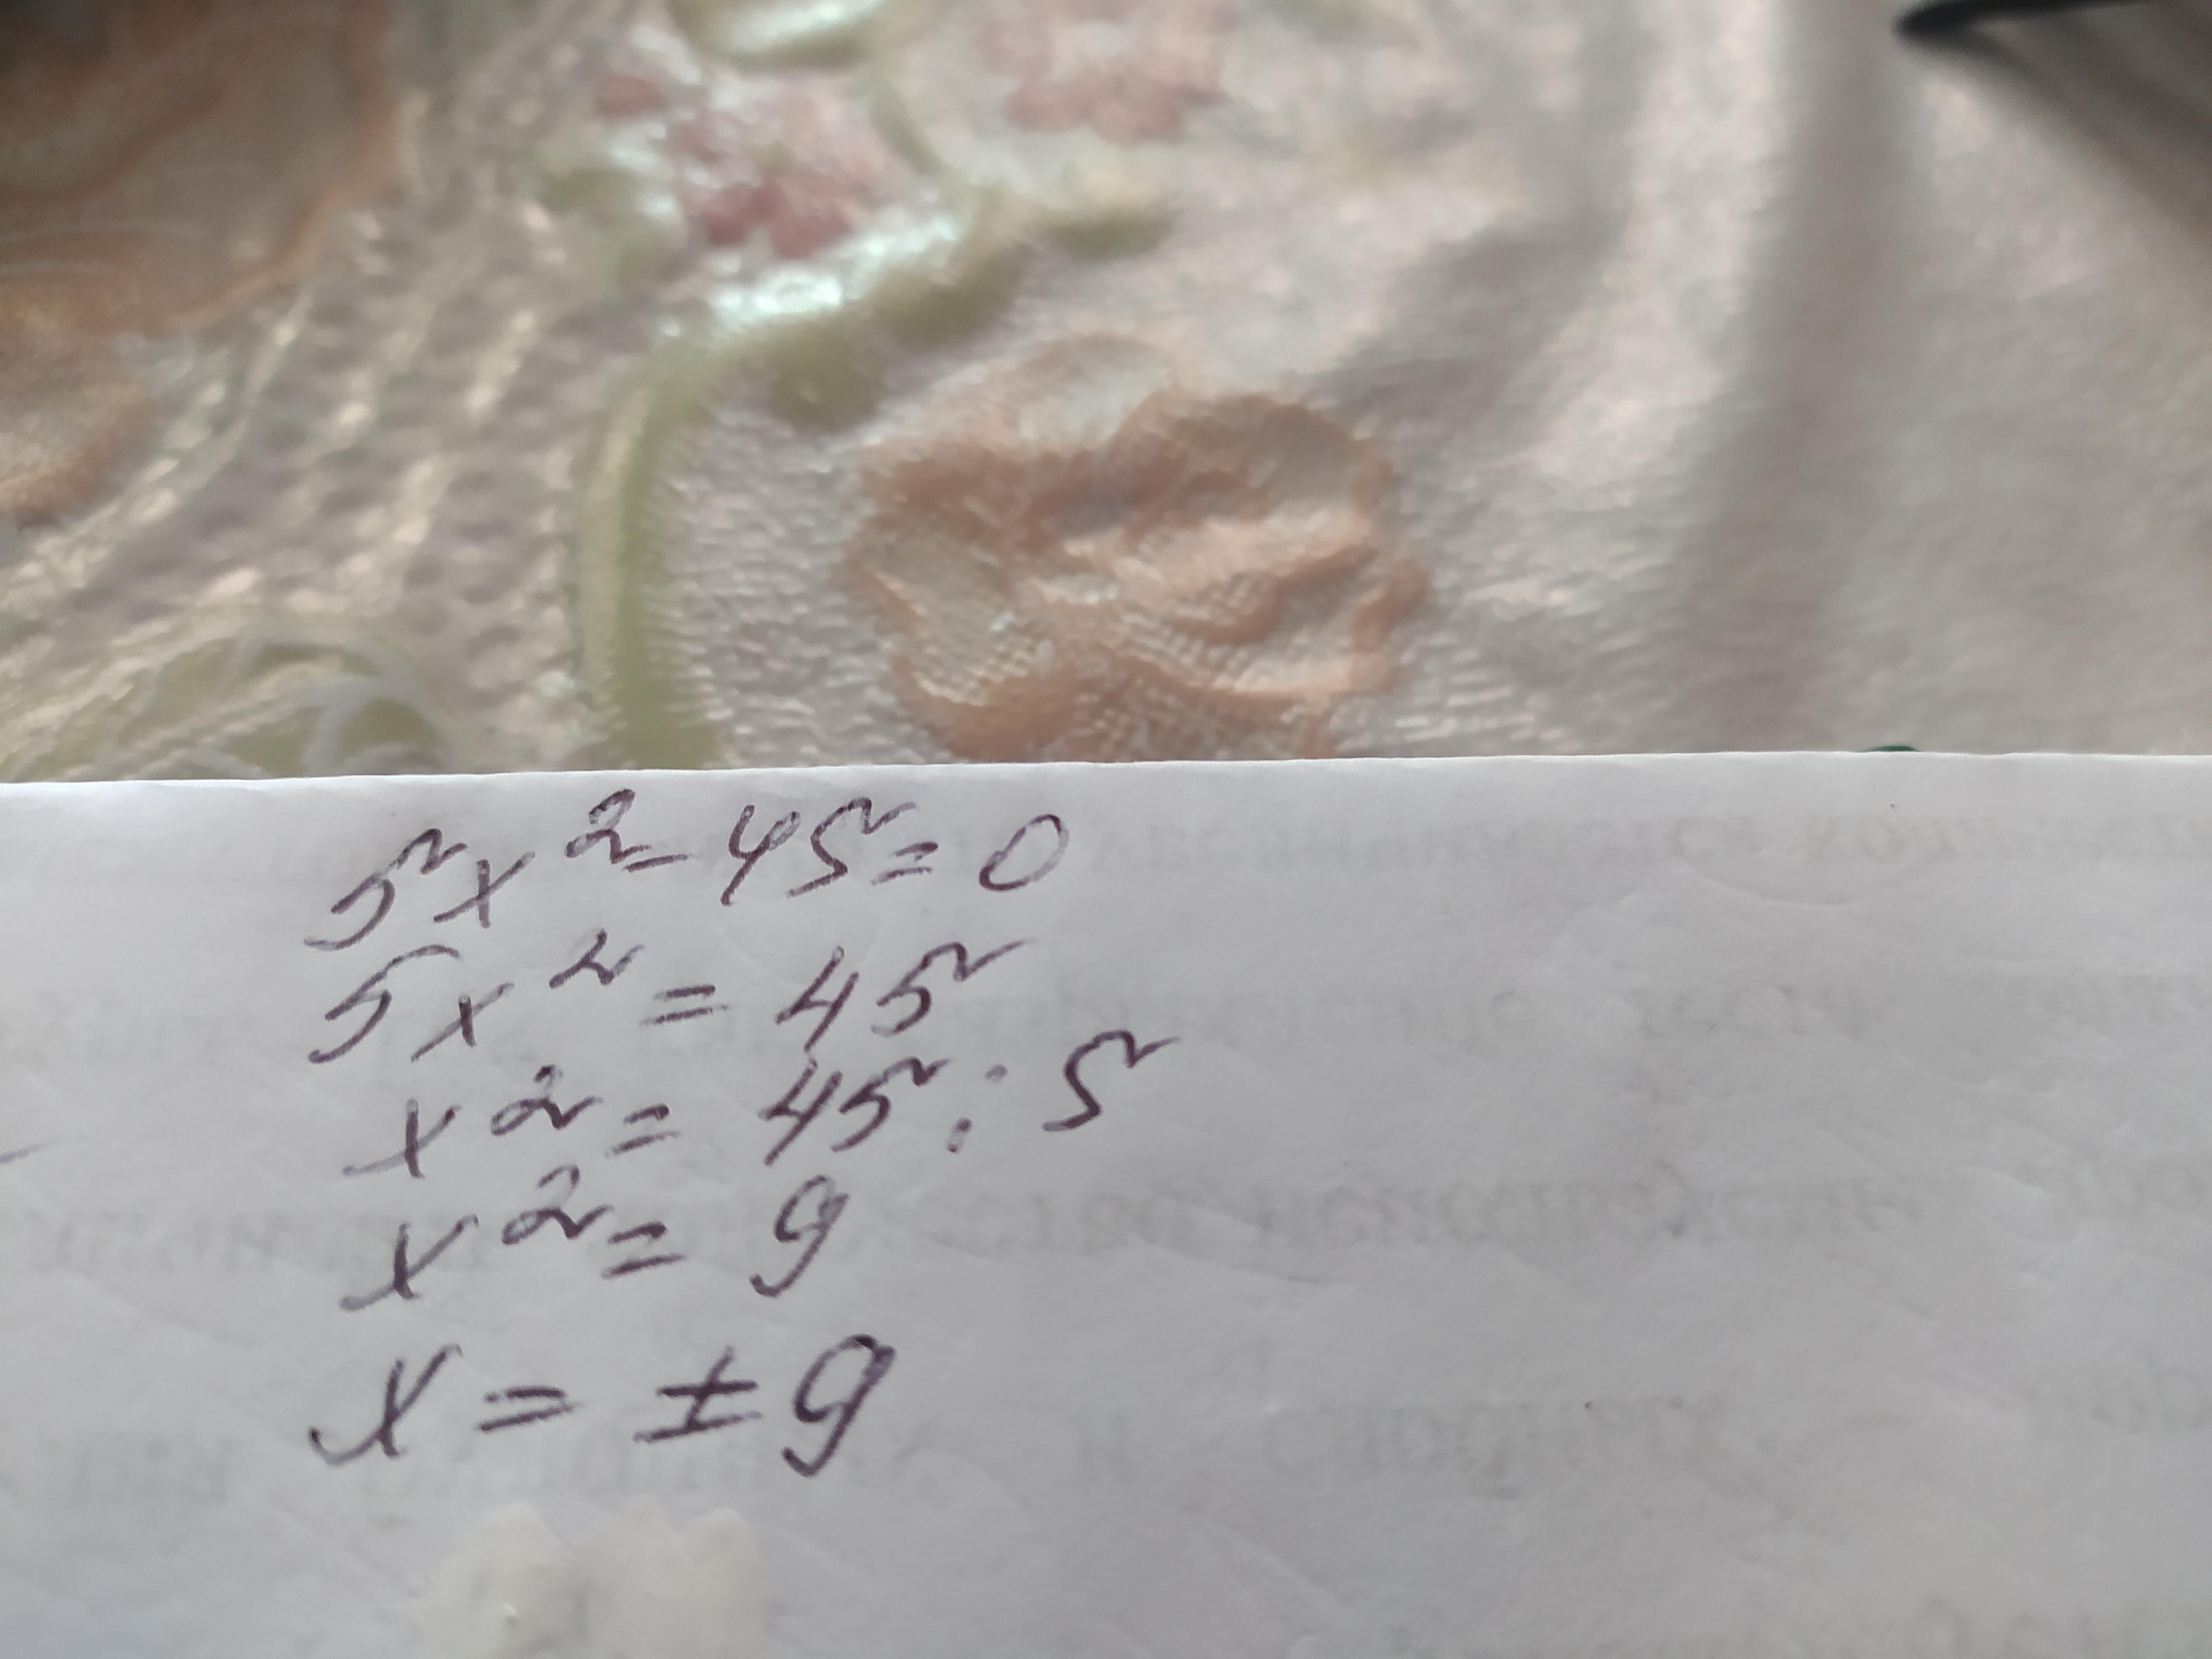 5x² - 45 = 0
5x² = 45
x² = 45 : 5
x² = 9
x = ± 9